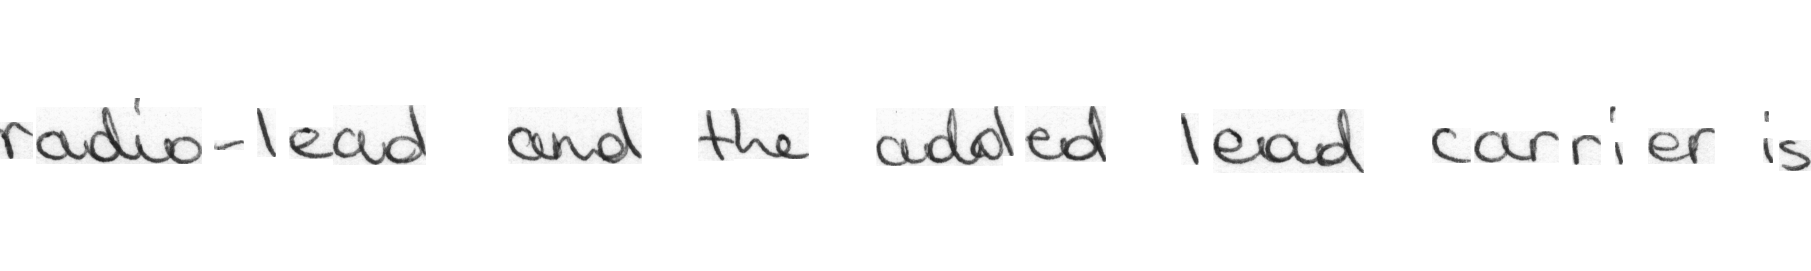 radio-lead and the added lead carrier is